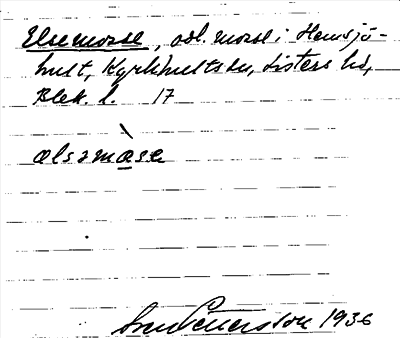 Elsemosse, odl. mosse i Hemsjö-
hult, Kyrkhults sn, Listers hd,
Blek. l. 17
ælsəmåsə
Sven Pettersson 1936